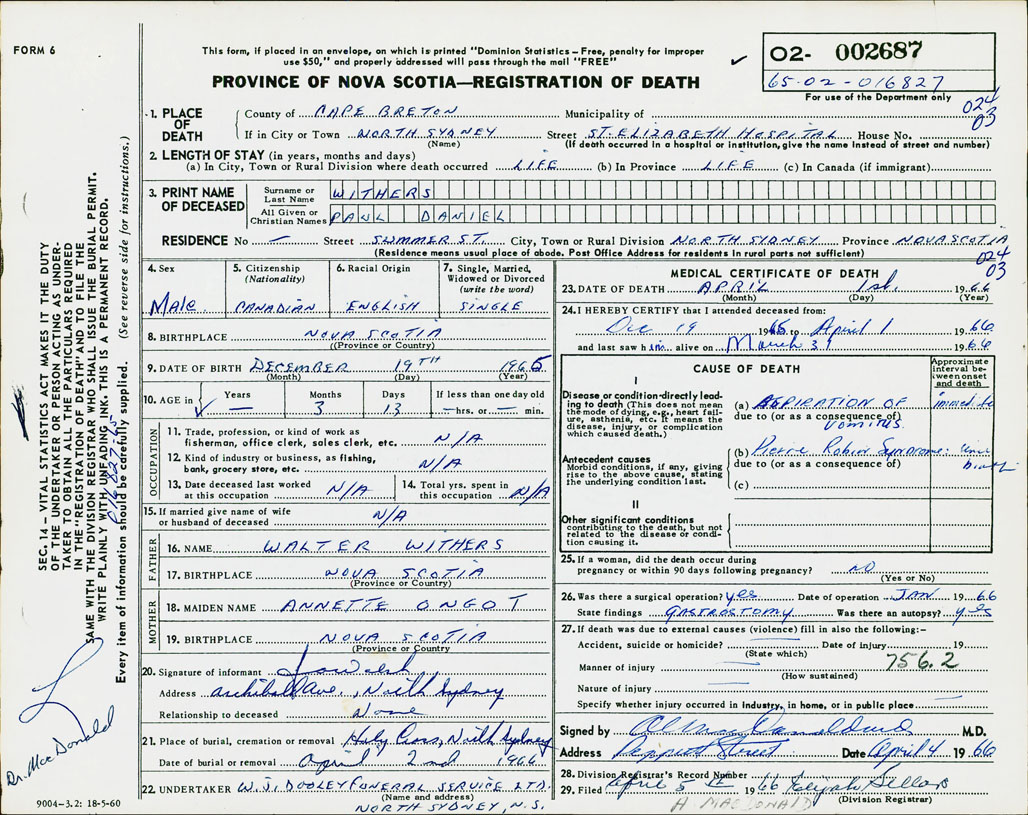 FORM 6
This form, if placed in an envelope, on which is printed "Dominion Statistics – Free, penalty for improper
use $50," and properly addressed will pass through the mail "FREE"
PROVINCE OF NOVA SCOTIA—REGISTRATION OF DEATH
✓
O2- 002687
65-02-016827
For use of the Department only
024
03
1. PLACE OF DEATH
County of CAPE BRETON Municipality of
If in City or Town NORTH SYDNEY Street ST. ELIZABETH HOSPITAL House No.
(Name) (If death occurred in a hospital or institution, give the name instead of street and number)
2. LENGTH OF STAY (in years, months and days)
(a) In City, Town or Rural Division where death occurred LIFE (b) In Province LIFE (c) In Canada (if immigrant)
3. PRINT NAME OF DECEASED
Surname or Last Name WITHERS
All Given or Christian Names PAUL DANIEL
RESIDENCE No — Street SUMMER ST. City, Town or Rural Division NORTH SYDNEY Province NOVA SCOTIA
(Residence means usual place of abode. Post Office Address for residents in rural parts not sufficient)
024
03
4. Sex
Male
5. Citizenship
(Nationality)
CANADIAN
6. Racial Origin
ENGLISH
7. Single, Married,
Widowed or Divorced
(write the word)
SINGLE
8. BIRTHPLACE NOVA SCOTIA
(Province or Country)
9. DATE OF BIRTH DECEMBER 19TH 1965
(Month) (Day) (Year)
10. AGE in
Years Months Days If less than one day old
✓ 3 13 — hrs. or — min.
OCCUPATION
11. Trade, profession, or kind of work as
fisherman, office clerk, sales clerk, etc. N/A
12. Kind of industry or business, as fishing,
bank, grocery store, etc. N/A
13. Date deceased last worked
at this occupation N/A
14. Total yrs. spent in
this occupation N/A
15. If married give name of wife
or husband of deceased N/A
FATHER
16. NAME WALTER WITHERS
17. BIRTHPLACE NOVA SCOTIA
(Province or Country)
MOTHER
18. MAIDEN NAME ANNETTE ONGOT
19. BIRTHPLACE NOVA SCOTIA
(Province or Country)
20. Signature of informant Walsh
Address Archibald Ave., North Sydney
Relationship to deceased None
21. Place of burial, cremation or removal Holy Cross, North Sydney
Date of burial or removal April 2nd 1966
22. UNDERTAKER W.J. DOOLEY FUNERAL SERVICE LTD.
(Name and address)
NORTH SYDNEY, N.S.
MEDICAL CERTIFICATE OF DEATH
23. DATE OF DEATH APRIL 1st. 1966
(Month) (Day) (Year)
24. I HEREBY CERTIFY that I attended deceased from:
Dec 19 1965 to April 1 1966
and last saw him alive on March 31 1966
CAUSE OF DEATH
Approximate
interval be-
tween onset
and death
I
Disease or condition directly lead-
ing to death (This does not mean
the mode of dying, e.g., heart fail-
ure, asthenia, etc. It means the
disease, injury, or complication
which caused death.)
(a) ASPIRATION OF
due to (or as a consequence of)
VOMITUS.
Antecedent causes
Morbid conditions, if any, giving
rise to the above cause, stating
the underlying condition last.
(b) Pierre Robin Syndrome: birth
due to (or as a consequence of)
(c)
II
Other significant conditions
contributing to the death, but not
related to the disease or condi-
tion causing it.
25. If a woman, did the death occur during
pregnancy or within 90 days following pregnancy? NO
(Yes or No)
26. Was there a surgical operation? yes Date of operation JAN 1966
State findings GASTROSTOMY Was there an autopsy? yes
27. If death was due to external causes (violence) fill in also the following:–
Accident, suicide or homicide? Date of injury 19
(State which)
756.2
Manner of injury
(How sustained)
Nature of injury
Specify whether injury occurred in industry, in home, or in public place
Signed by M.D.
Address Peppett Street Date April 4 1966
28. Division Registrar's Record Number
29. Filed April 5th 1966
(Division Registrar)
A. MACDONALD
SEC. 14 – VITAL STATISTICS ACT MAKES IT THE DUTY
OF THE UNDERTAKER OR PERSON ACTING AS UNDER-
TAKER TO OBTAIN ALL THE PARTICULARS REQUIRED
IN THE "REGISTRATION OF DEATH" AND TO FILE THE
SAME WITH THE DIVISION REGISTRAR WHO SHALL ISSUE THE BURIAL PERMIT.
WRITE PLAINLY WITH UNFADING INK. THIS IS A PERMANENT RECORD.
Every item of information should be carefully supplied. (See reverse side for instructions.)
Dr. MacDonald
9004-3.2: 18-5-60